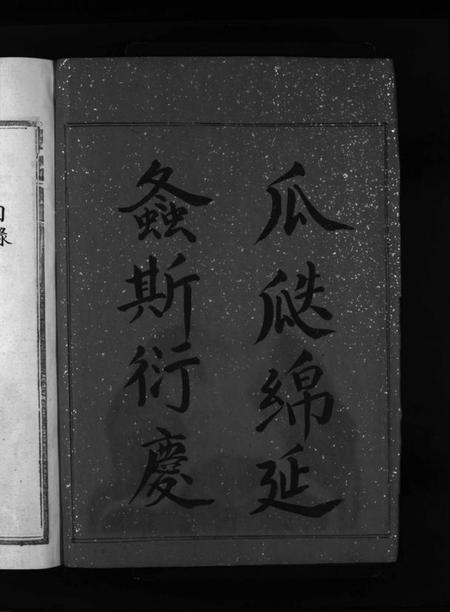 瓜瓞綿延
螽斯衍慶
目錄